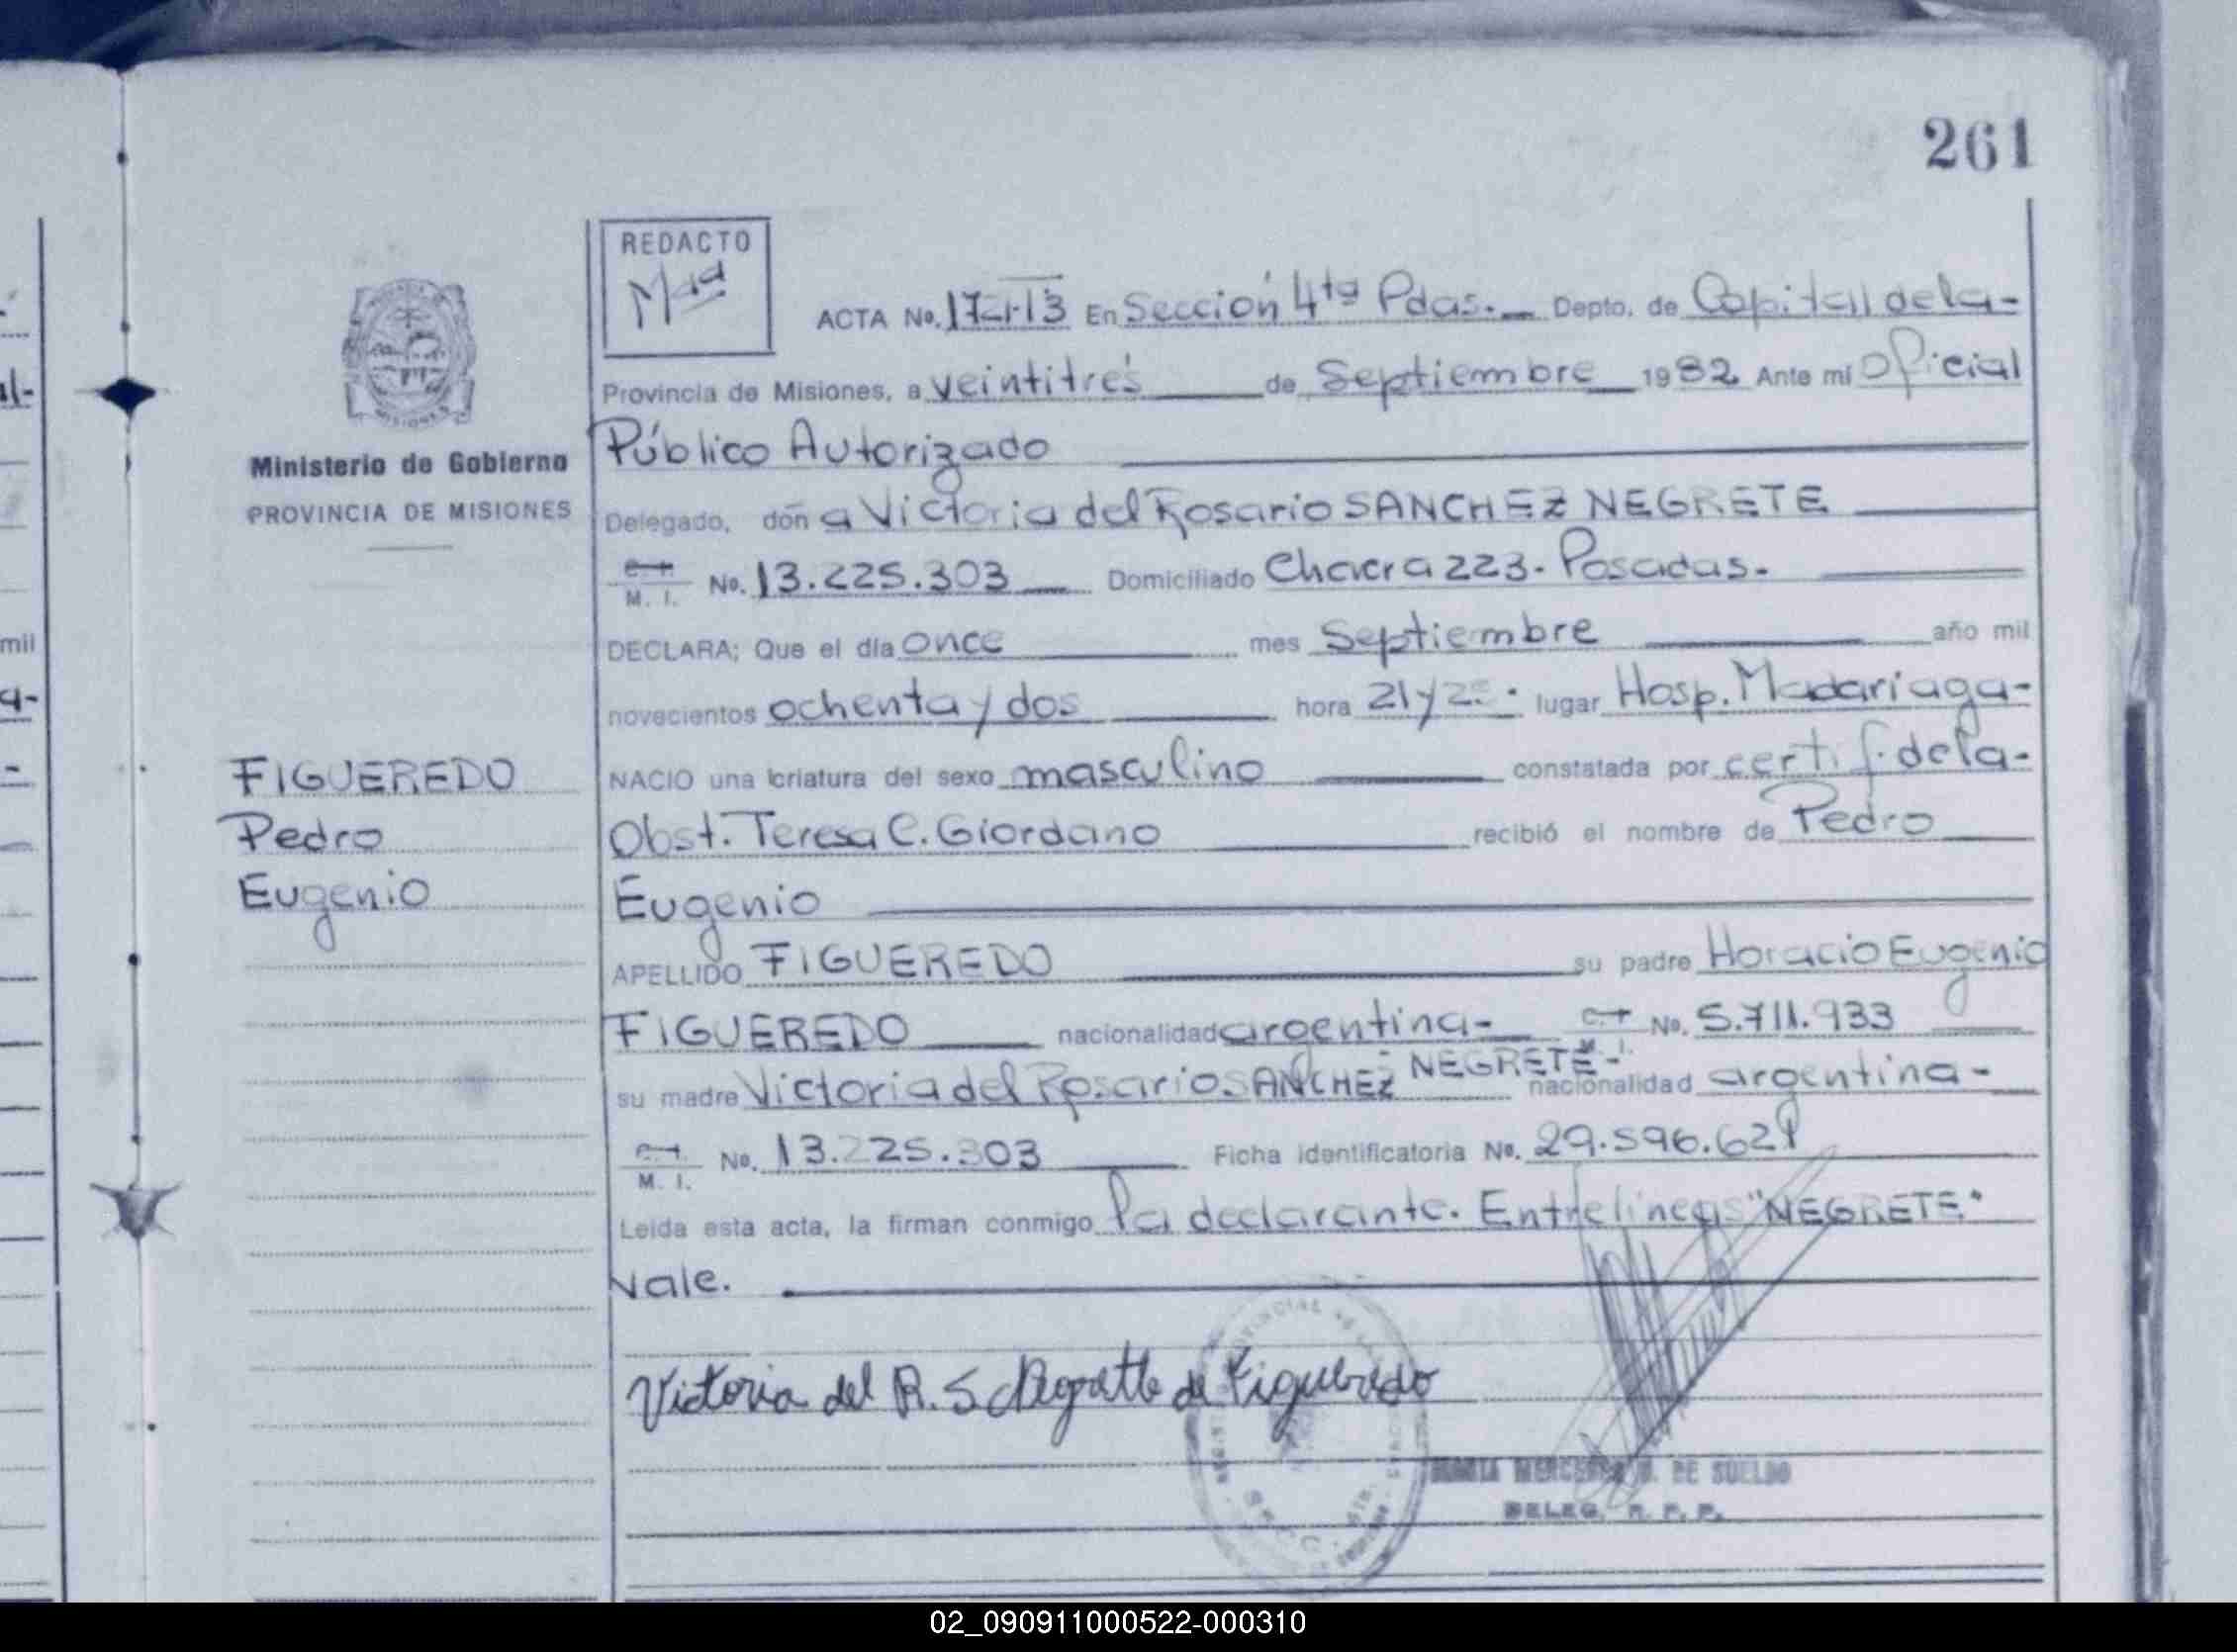 261
REDACTO
ACTA No. En Sección 4ta Pdas. Depto. de Capital de la-
Provincia de Misiones, a veintitrés de Septiembre 1982 Ante mi Oficial
Público Autorizado
Ministerio de Gobierno
PROVINCIA DE MISIONES
Delegado, don a Victoria del Rosario SANCHEZ NEGRETE
M. I. No. 13.225.303 Domiciliado Chacra 223. Posadas.
DECLARA; Que el día once mes Septiembre año mil
novecientos ochenta y dos hora 21 y lugar Hosp. Madariaga-
NACIO una criatura del sexo masculino constatada por certif. de la-
Obst. Teresa C. Giordano recibió el nombre de Pedro
Eugenio
FIGUEREDO
Pedro
Eugenio
APELLIDO FIGUEREDO su padre Horacio Eugenio
FIGUEREDO nacionalidad argentina- No. 5.711.933
su madre Victoria del Rosario SANCHEZ NEGRETE- nacionalidad argentina-
M. I. No. 13.225.303 Ficha identificatoria No. 29.596.621
Leída esta acta, la firman conmigo la declarante. Entrelíneas "NEGRETE"
Vale.
Victoria del R. S Negrette de Figueredo
DE SUELDO
DELEG. R. P. P.
02_090911000522-000310